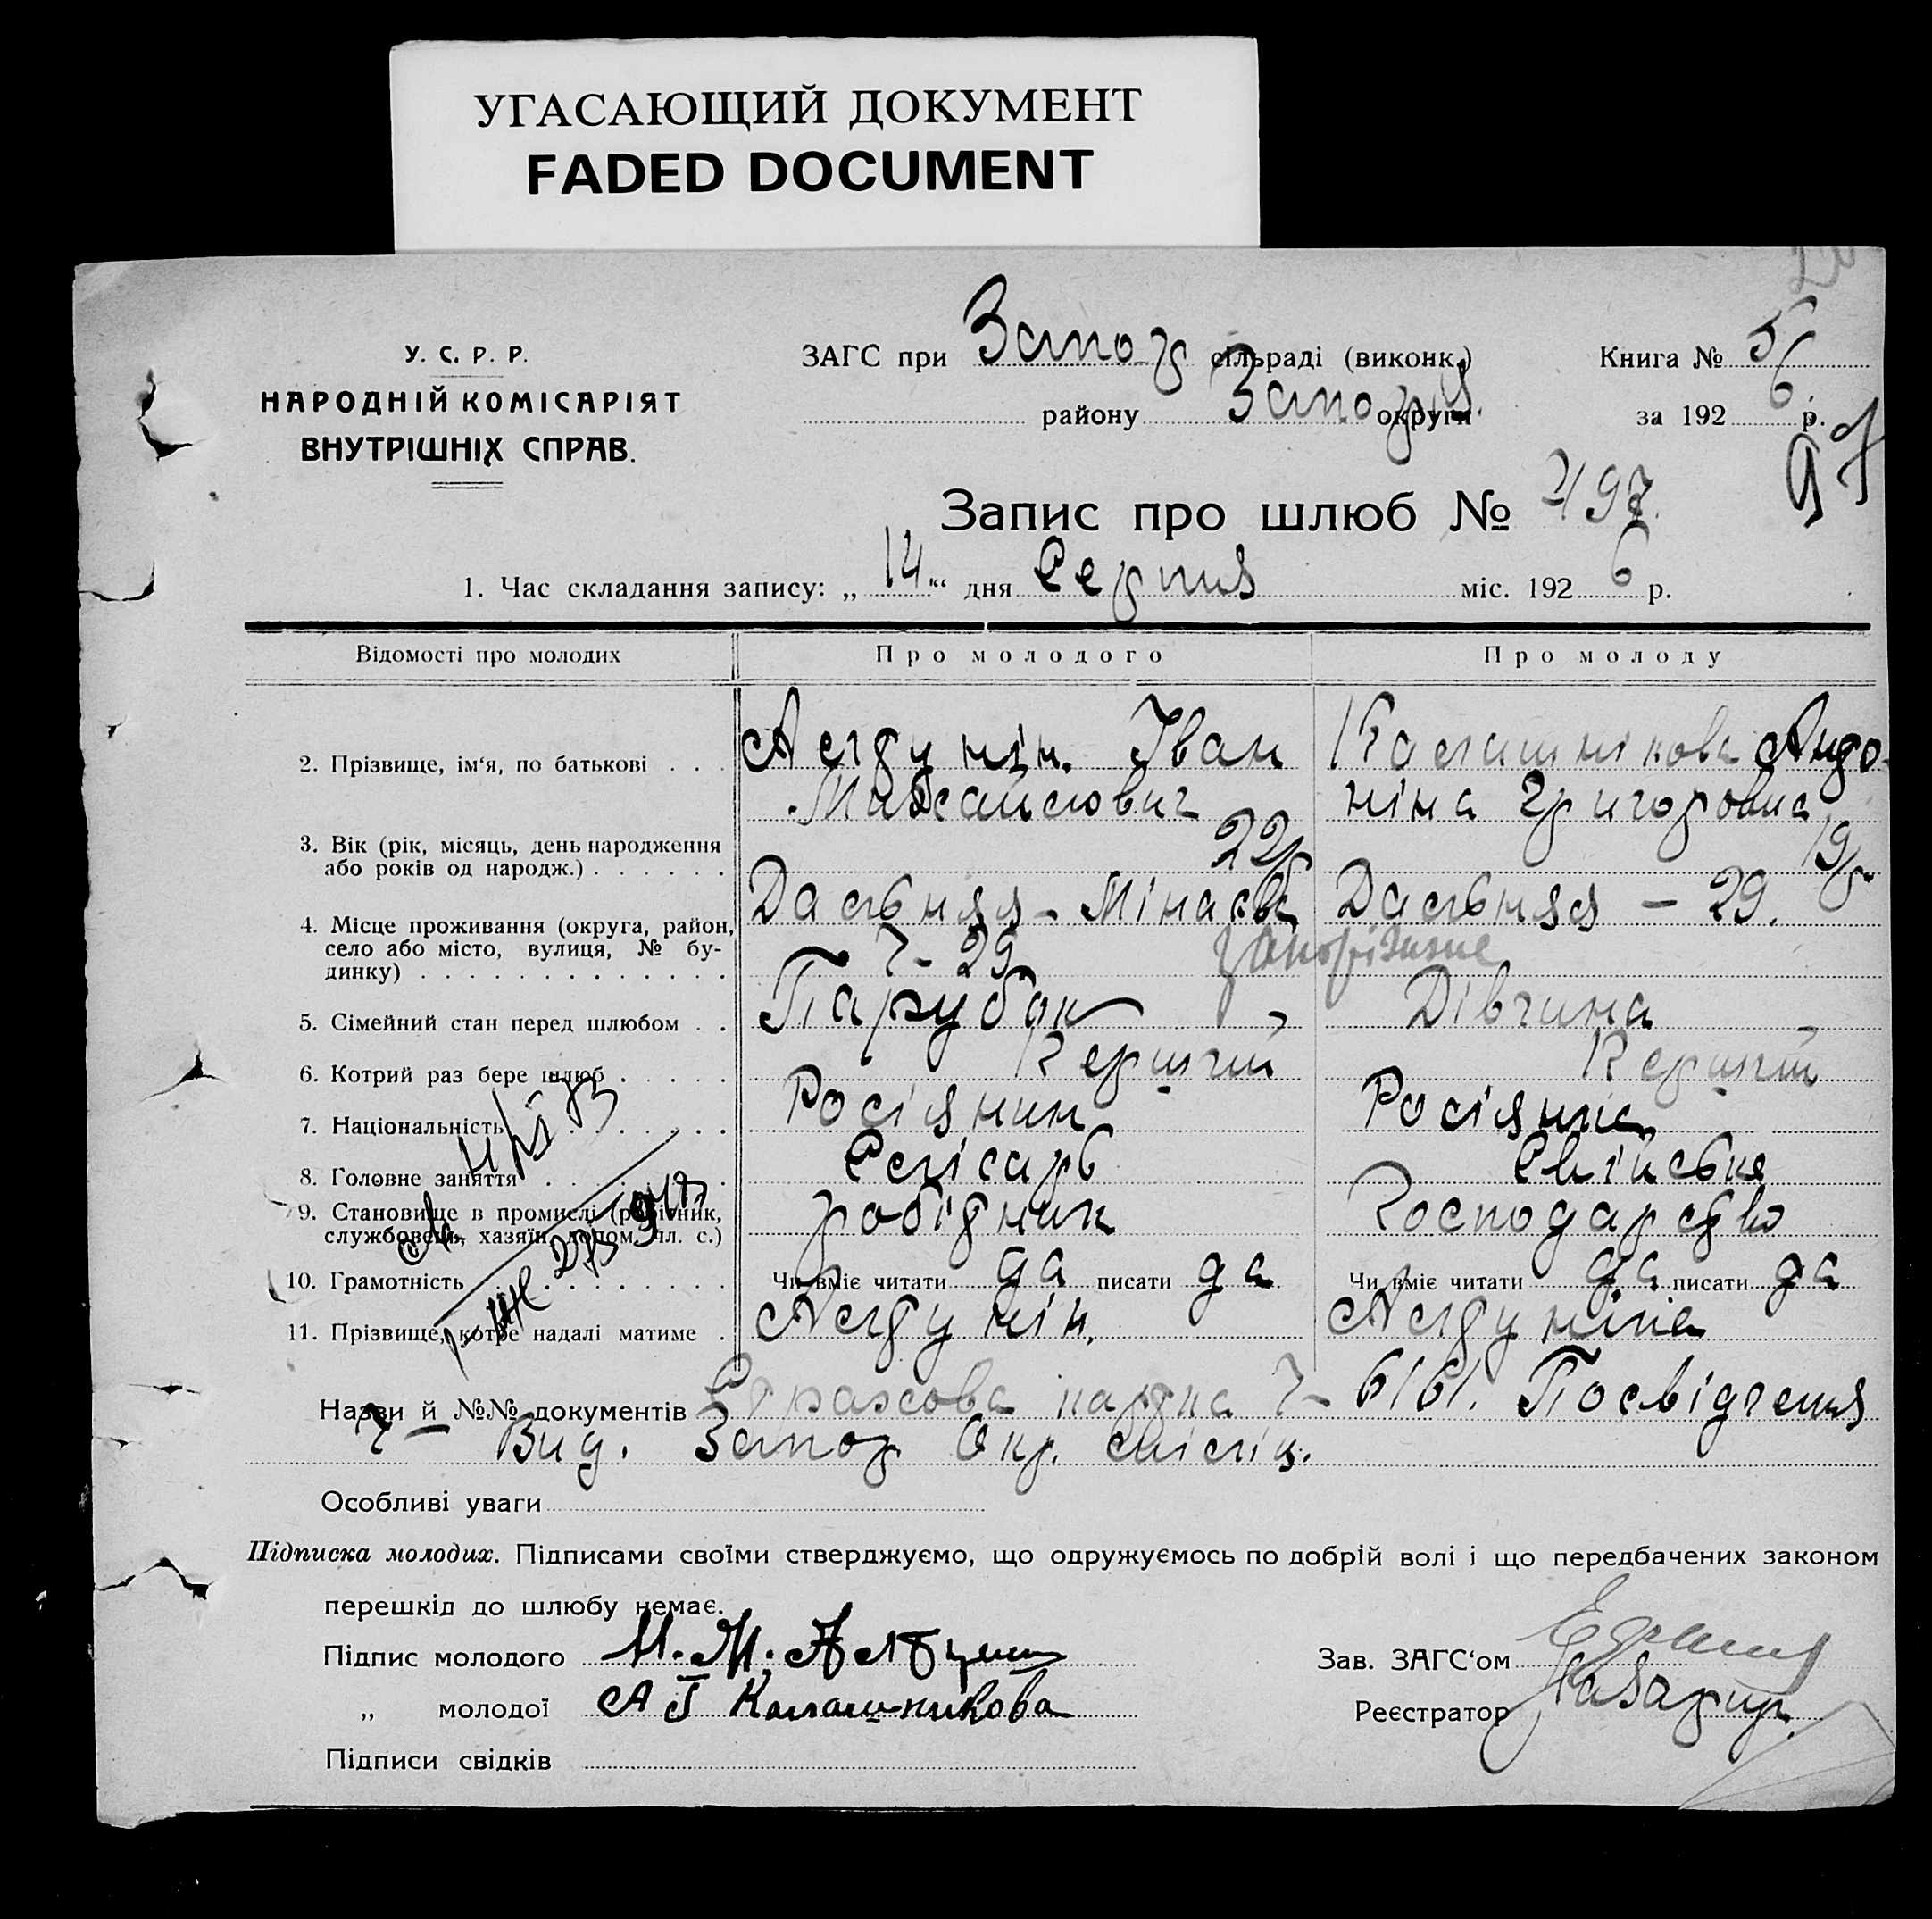 УГАСАЮЩИЙ ДОКУМЕНТ
FADED DOCUMENT
У. С. Р. Р.
НАРОДНІЙ КОМІСАРІЯТ
ВНУТРІШНІХ СПРАВ.
ЗАГС при Запор сільраді (виконк.)
району Запоріз. округи
Книга № 5
за 192 6 р.
97
Запис про шлюб № 497.
1. Час складання запису: „ 14 “ дня Серпня міс. 192 6 р.
Відомості про молодих
Про молодого
Про молоду
2. Прізвище, ім‘я, по батькові
Алтунін. Іван
Михайлович
Калашнікова Анто-
ніна Григоровна
3. Вік (рік, місяць, день народження
або років од народж.)
22 р
19 р
4. Місце проживання (округа, район,
село або місто, вулиця, № бу-
динку)
Дальняя - Мінаєва
7 - 29
Дальняя - 29.
Запоріжжє
5. Сімейний стан перед шлюбом
Парубок
Дівчина
6. Котрий раз бере шлюб
Перший
Перший
7. Національність
Росіянин
Росіянка
8. Головне заняття
Слісарь
Свійське
9. Становище в промислі (робітник,
службовець, хазяїн, допом. чл. с.)
робітник
Господарство
10. Грамотність
Чи вміє читати да писати да
Чи вміє читати да писати да
11. Прізвище, котре надалі матиме
Алтунін.
Алтуніна
Назви й №№ документів Страхова картка 7 - 6161. Посвідчення
7 - Вид. Запор Окр. міліц.
Особливі уваги
Підписка молодих. Підписами своїми стверджуємо, що одружуємось по добрій волі і що передбачених законом
перешкід до шлюбу немає.
Підпис молодого И. М. Алтунин
„ молодої А Г Калашникова
Підписи свідків
Зав. ЗАГС‘ом
Реєстратор